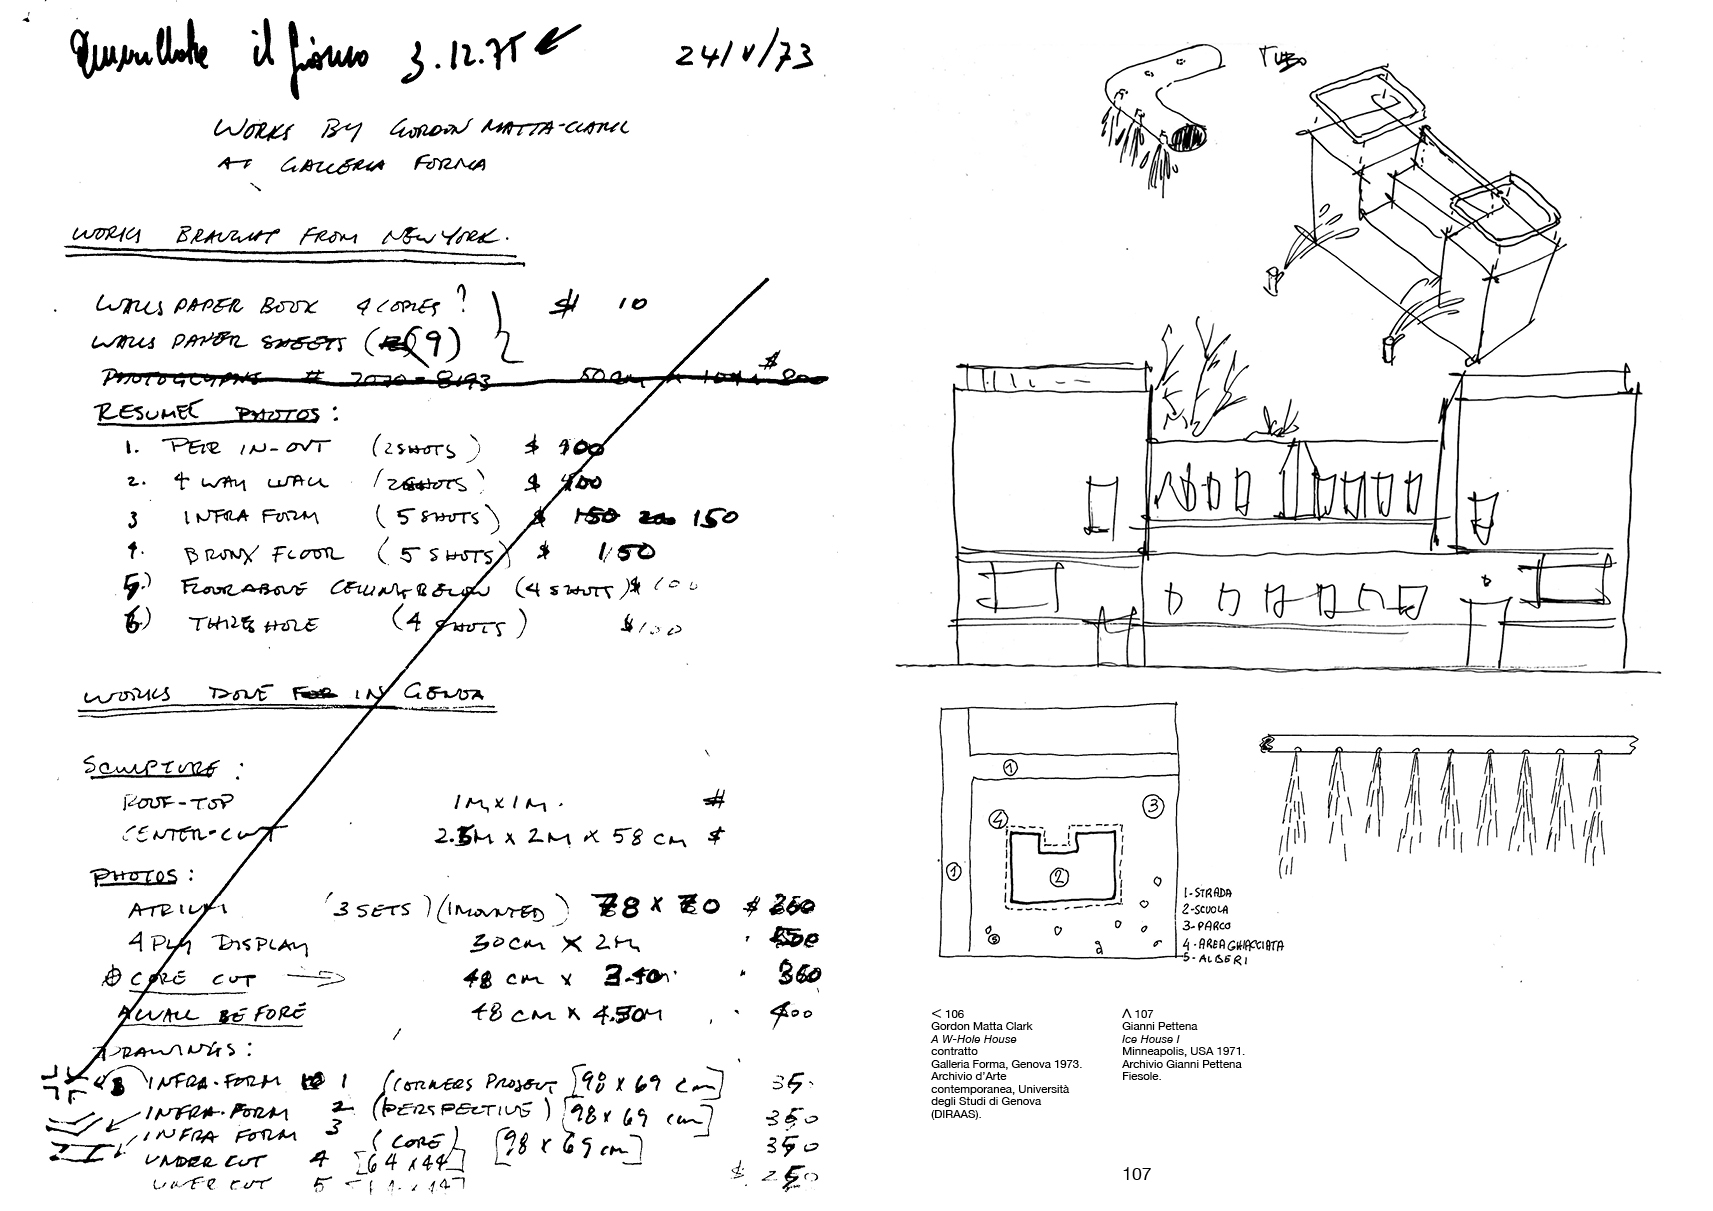 il giorno 3.12.75
24/V/73
WORKS BY GORDON MATTA-CLARK
AT GALLERIA FORMA
WORKS BRAUGHT FROM NEW YORK.
WALLS PAPER BOOK 4 COPIES ? $ 10
WALLS PAPER SHEETS (9)
PHOTOGLYPHS # $ 800
RESUMEÉ PHOTOS :
1. PIER IN-OUT (2 SHOTS) $ 100
2. 4 WAY WALL (2 SHOTS) $ 100
3 INFRA FORM (5 SHOTS) $ 150 200 150
4. BRONX FLOOR (5 SHOTS) $ 150
5.) FLOOR ABOVE CEILING BELOW (4 SHOTS) $ 100
6) THRESHOLE (4 SHOTS) $ 100
WORKS DONE FOR IN GENOA
SCULPTURE :
ROOF-TOP 1M x 1M. $
CENTER-CUT 2.5M x 2M x 58 CM $
PHOTOS :
ATRIUM (3 SETS) (MOUNTED) 78 x 70 $ 360
4 PLY DISPLAY 30CM x 2M
CORE CUT 48 CM x 3.40M 360
A WALL BEFORE 48 CM x 4.50M 400
DRAWINGS :
INFRA-FORM 1 (CORNERS PROJECT [98 x 69 cm] 35
INFRA-FORM 2 (PERSPECTIVE) [98 x 69 cm] 350
INFRA FORM 3 (CORE) [98 x 69 cm] 350
UNDER CUT 4 [64 x 44] $ 250
UNDER CUT 5
TUBO
1
3
4
1
2
5
1-STRADA
2-SCUOLA
3-PARCO
4-AREA GHIACCIATA
5-ALBERI
< 106
Gordon Matta Clark
A W-Hole House
contratto
Galleria Forma, Genova 1973.
Archivio d'Arte
contemporanea, Università
degli Studi di Genova
(DIRAAS).
Λ 107
Gianni Pettena
Ice House I
Minneapolis, USA 1971.
Archivio Gianni Pettena
Fiesole.
107